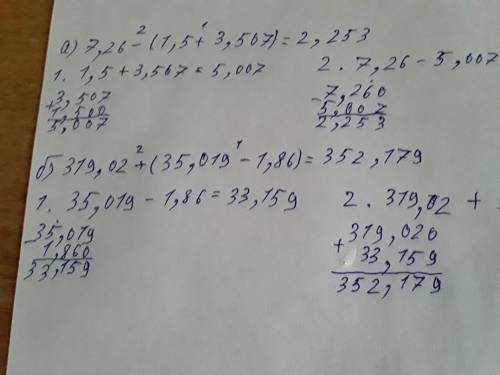 а) 7,26 - (1,5 + 3,507) = 2,253
2 1
1. 1,5 + 3,507 = 5,007
+ 3,507
1,500
5,007
2. 7,26 - 5,007
- 7,260
5,007
2,253
б) 319,02 + (35,019 - 1,86) = 352,179
2 1
1. 35,019 - 1,86 = 33,159
- 35,019
1,860
33,159
2. 319,02 +
319,020
+ 33,159
352,179